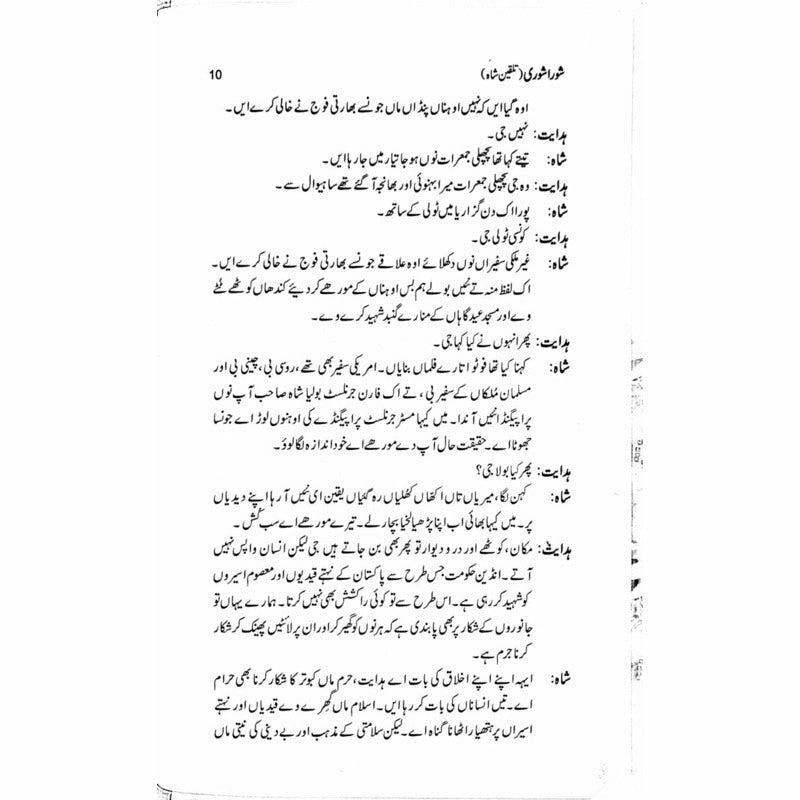 شورا شوری (تلقین شاہ) 10
اوہ گیا ایں کہ نہیں اوہناں پنڈاں ماں جونسے بھارتی فوج نے خالی کرے ایں۔
ہدایت: نہیں جی۔
شاہ: تیتے کہا تھا پچھلی جمعرات نوں ہو جا تیار میں جا رہا ایں۔
ہدایت: وہ جی پچھلی جمعرات میرا بہنوئی اور بھانجہ آ گئے تھے ساہیوال سے۔
شاہ: پورا اک دن گزاریا میں ٹولی کے ساتھ۔
ہدایت: کونسی ٹولی جی۔
شاہ: غیر ملکی سفیراں نوں دکھلائے اوہ علاقے جونسے بھارتی فوج نے خالی کرے ایں۔
اک لفظ منہ تے نئیں بولے ہم بس اوہناں کے مورھے کر دیئے کندھاں کوٹھے ٹٹے
وے اور مسجد عید گاہاں کے منارے گنبد شہید کرے وے۔
ہدایت: پھر انہوں نے کیا کہا جی۔
شاہ: کہنا کیا تھا فوٹو اتارے فلماں بنایاں۔ امریکی سفیر بھی تھے، روسی بی، چینی بی اور
مسلمان مُلکاں کے سفیر بی، تے اک فارن جرنلسٹ بولیا شاہ صاحب آپ نوں
پراپیگنڈا نئیں آندا۔ میں کیہا مسٹر جرنلسٹ پراپیگنڈے کی اوہنوں لوڑ اے جونسا
جھوٹا اے۔ حقیقت حال آپ دے مورھے اے خود اندازہ لگا لوؤ۔
ہدایت: پھر کیا بولا جی؟
شاہ: کہن لگا، میریاں تاں اکھاں کھلیاں رہ گئیاں یقین ای نئیں آ رہا اپنے دیدیاں
پر۔ میں کیہا بھائی اب اپنا پڑھیا لخیا بچار لے۔ تیرے مورھے اے سب کُش۔
ہدایت: مکان، کوٹھے اور در و دیوار تو پھر بھی بن جاتے ہیں جی لیکن انسان واپس نہیں
آتے۔ انڈین حکومت جس طرح سے پاکستان کے نہتے قیدیوں اور معصوم اسیروں
کو شہید کر رہی ہے۔ اس طرح سے تو کوئی راکشش بھی نہیں کرتا۔ ہمارے یہاں تو
جانوروں کے شکار پر بھی پابندی ہے کہ ہرنوں کو گھیر کر اور ان پر لائٹیں پھینک کر شکار
کرنا جرم ہے۔
شاہ: ایہہ اپنے اپنے اخلاق کی بات اے ہدایت، حرم ماں کبوتر کا شکار کرنا بھی حرام
اے۔ تیں انساناں کی بات کر رہا ایں۔ اسلام ماں گھرے وے قیدیاں اور نہتے
اسیراں پر ہتھیار اٹھانا گناہ اے۔ لیکن سلامتی کے مذہب اور بے دینی کی نیتی ماں